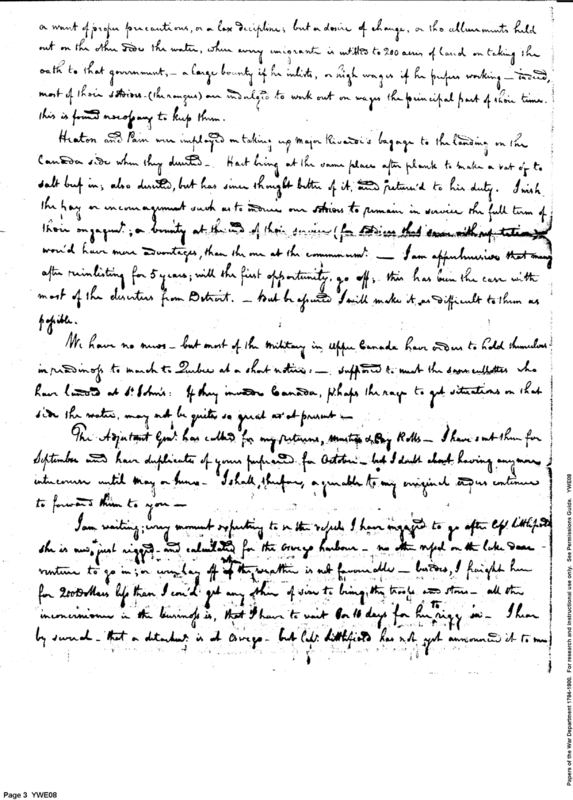 a want of proper precautions, or a lax decipline; but a desire of change, or the allurements held
out on the other side the water, where every imigrante is intitled to 200 acres of land on taking the
oath to that government, - a large bounty if he inlists, or high wages if he prefers working - indeed,
most of their soldiers (the rangers) are indulged to work out on wages the principal part of their time.
this is found necessary to keep them.
Heaton and Pain were imployed in taking up Major Rivardi's bagage to the landing on the
Canada side when they deserted - Hart being at the same place after plank to make a vat of to
salt beef in; also deserted, but has since thought better of it, and return'd to his duty. I wish
the pay or incouragement such as to induce our soldiers to remain in service the full term of
their engagmt; a bounty at the end of their service
wou'd have more advantages, than the one at the commencmt - I am apprehensive that many
after reinlisting for 5 years; will the first opportunity, go off; this has been the case with
most of the deserters from Detroit. - But be assured I will make it, as difficult to them as
possible.
We have no news - but most of the Military in Upper Canada have orders to hold themselves
in readiness to march to Quebec at a short notice; - supposed to meet the sansculottes who
have landed at St John's: If they invade Canada, p'haps the rage to get situations on that
side the water, may not be quite so great as at present -
The Adjutant Genl has called for my returns, Musters & Pay Rolls - I have sent them for
September and have duplicates of yours prepared for October - but I doubt about having any more
intercourse until May or June - I shall, therefore, agreeable to my original continue
to forward them to you -
I am waiting; every moment expecting to see the vessel I have engaged to go after Capt Littlefield
she is new, just rigged - and calculated for the Oswego harbour - no other vessel on the lake dare
venture to go in; or even lay off if the weather is not favourable - besides, I freight her
for 200 Dollars less than I cou'd get any other of size to bring the troops and stores - all the
inconvenience in the business is, that I have to wait 8 or 10 days for her to rigg in - I hear
by several - that a detachmt is at Oswego - but Capt Littlefield has not yet announced it to me
Page 3 YWE08
Papers of the War Department 1784-1800. For research and instructional use only. See Permissions Guide. YWE08